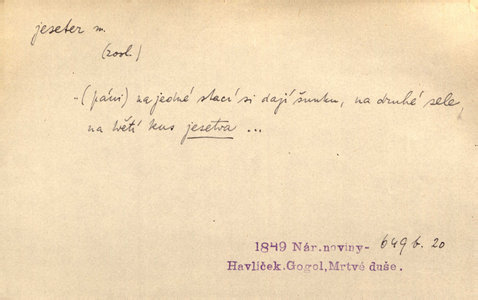 jeseter m.
(zool.)
- (páni) na jedné stací si dají šunku, na druhé sele,
na třetí kus jesetra ...
1849 Nár.noviny- 649 b. 20
Havlíček.Gogol,Mrtvé duše.